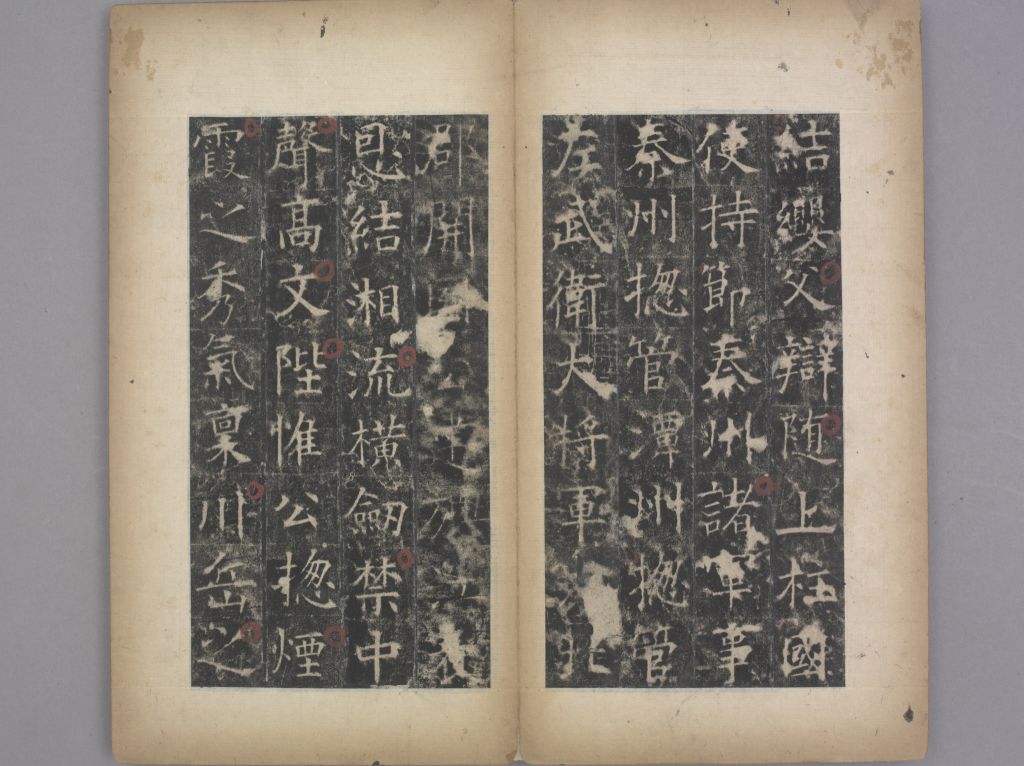 結纓父辯随上柱國
使持節秦州諸軍事
秦州揔管潭州揔管
左武衛大將軍北
郡開
恩結湘流橫劒禁中
聲高文陛惟公揔煙
霞之秀氣稟川岳之